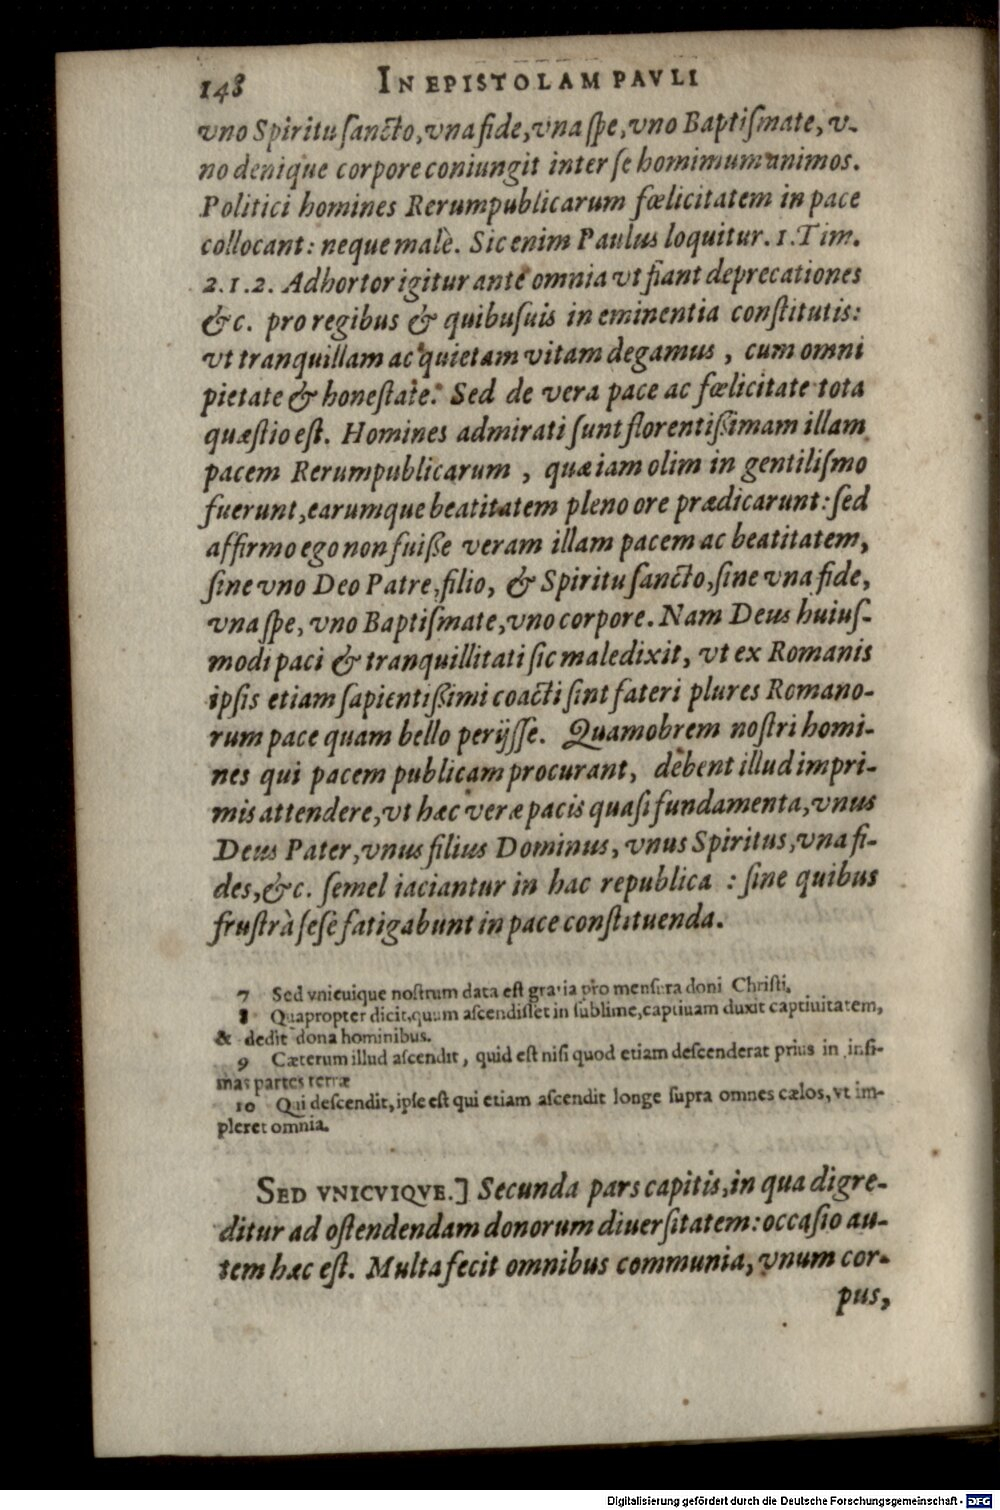 148 IN EPISTOLAM PAVLI
vno Spiritu sancto, vna fide, vna spe, vno Baptismate, v-
no denique corpore coniungit inter se hominum animos.
Politici homines Rerumpublicarum fœlicitatem in pace
collocant: neque malè. Sic enim Paulus loquitur. 1. Tim.
2.1.2. Adhortor igitur ante omnia vt fiant deprecationes
&c. pro regibus & quibusuis in eminentia constitutis:
vt tranquillam ac quietam vitam degamus, cum omni
pietate & honestate. Sed de vera pace ac fœlicitate tota
quæstio est. Homines admirati sunt florentißimam illam
pacem Rerumpublicarum, quæ iam olim in gentilismo
fuerunt, earumque beatitatem pleno ore prædicarunt: sed
affirmo ego non fuiße veram illam pacem ac beatitatem,
sine vno Deo Patre, filio, & Spiritu sancto, sine vna fide,
vna spe, vno Baptismate, vno corpore. Nam Deus huius-
modi paci & tranquillitati sic maledixit, vt ex Romanis
ipsis etiam sapientißimi coacti sint fateri plures Romano-
rum pace quam bello perijsse. Quamobrem nostri homi-
nes qui pacem publicam procurant, debent illud impri-
mis attendere, vt hæc veræ pacis quasi fundamenta, vnus
Deus Pater, vnus filius Dominus, vnus Spiritus, vna fi-
des, &c. semel iaciantur in hac republica : sine quibus
frustrà sese fatigabunt in pace constituenda.
7 Sed vnicuique nostrum data est gratia pro mensura doni Christi.
8 Quapropter dicit, quum ascendisset in sublime, captiuam duxit captiuitatem,
& dedit dona hominibus.
9 Cæterum illud ascendit, quid est nisi quod etiam descenderat prius in infi-
mas partes terræ
10 Qui descendit, ipse est qui etiam ascendit longe supra omnes cælos, vt im-
pleret omnia.
SED VNICVIQVE.] Secunda pars capitis, in qua digre-
ditur ad ostendendam donorum diuersitatem: occasio au-
tem hæc est. Multa fecit omnibus communia, vnum cor-
pus,
Digitalisierung gefördert durch die Deutsche Forschungsgemeinschaft - DFG